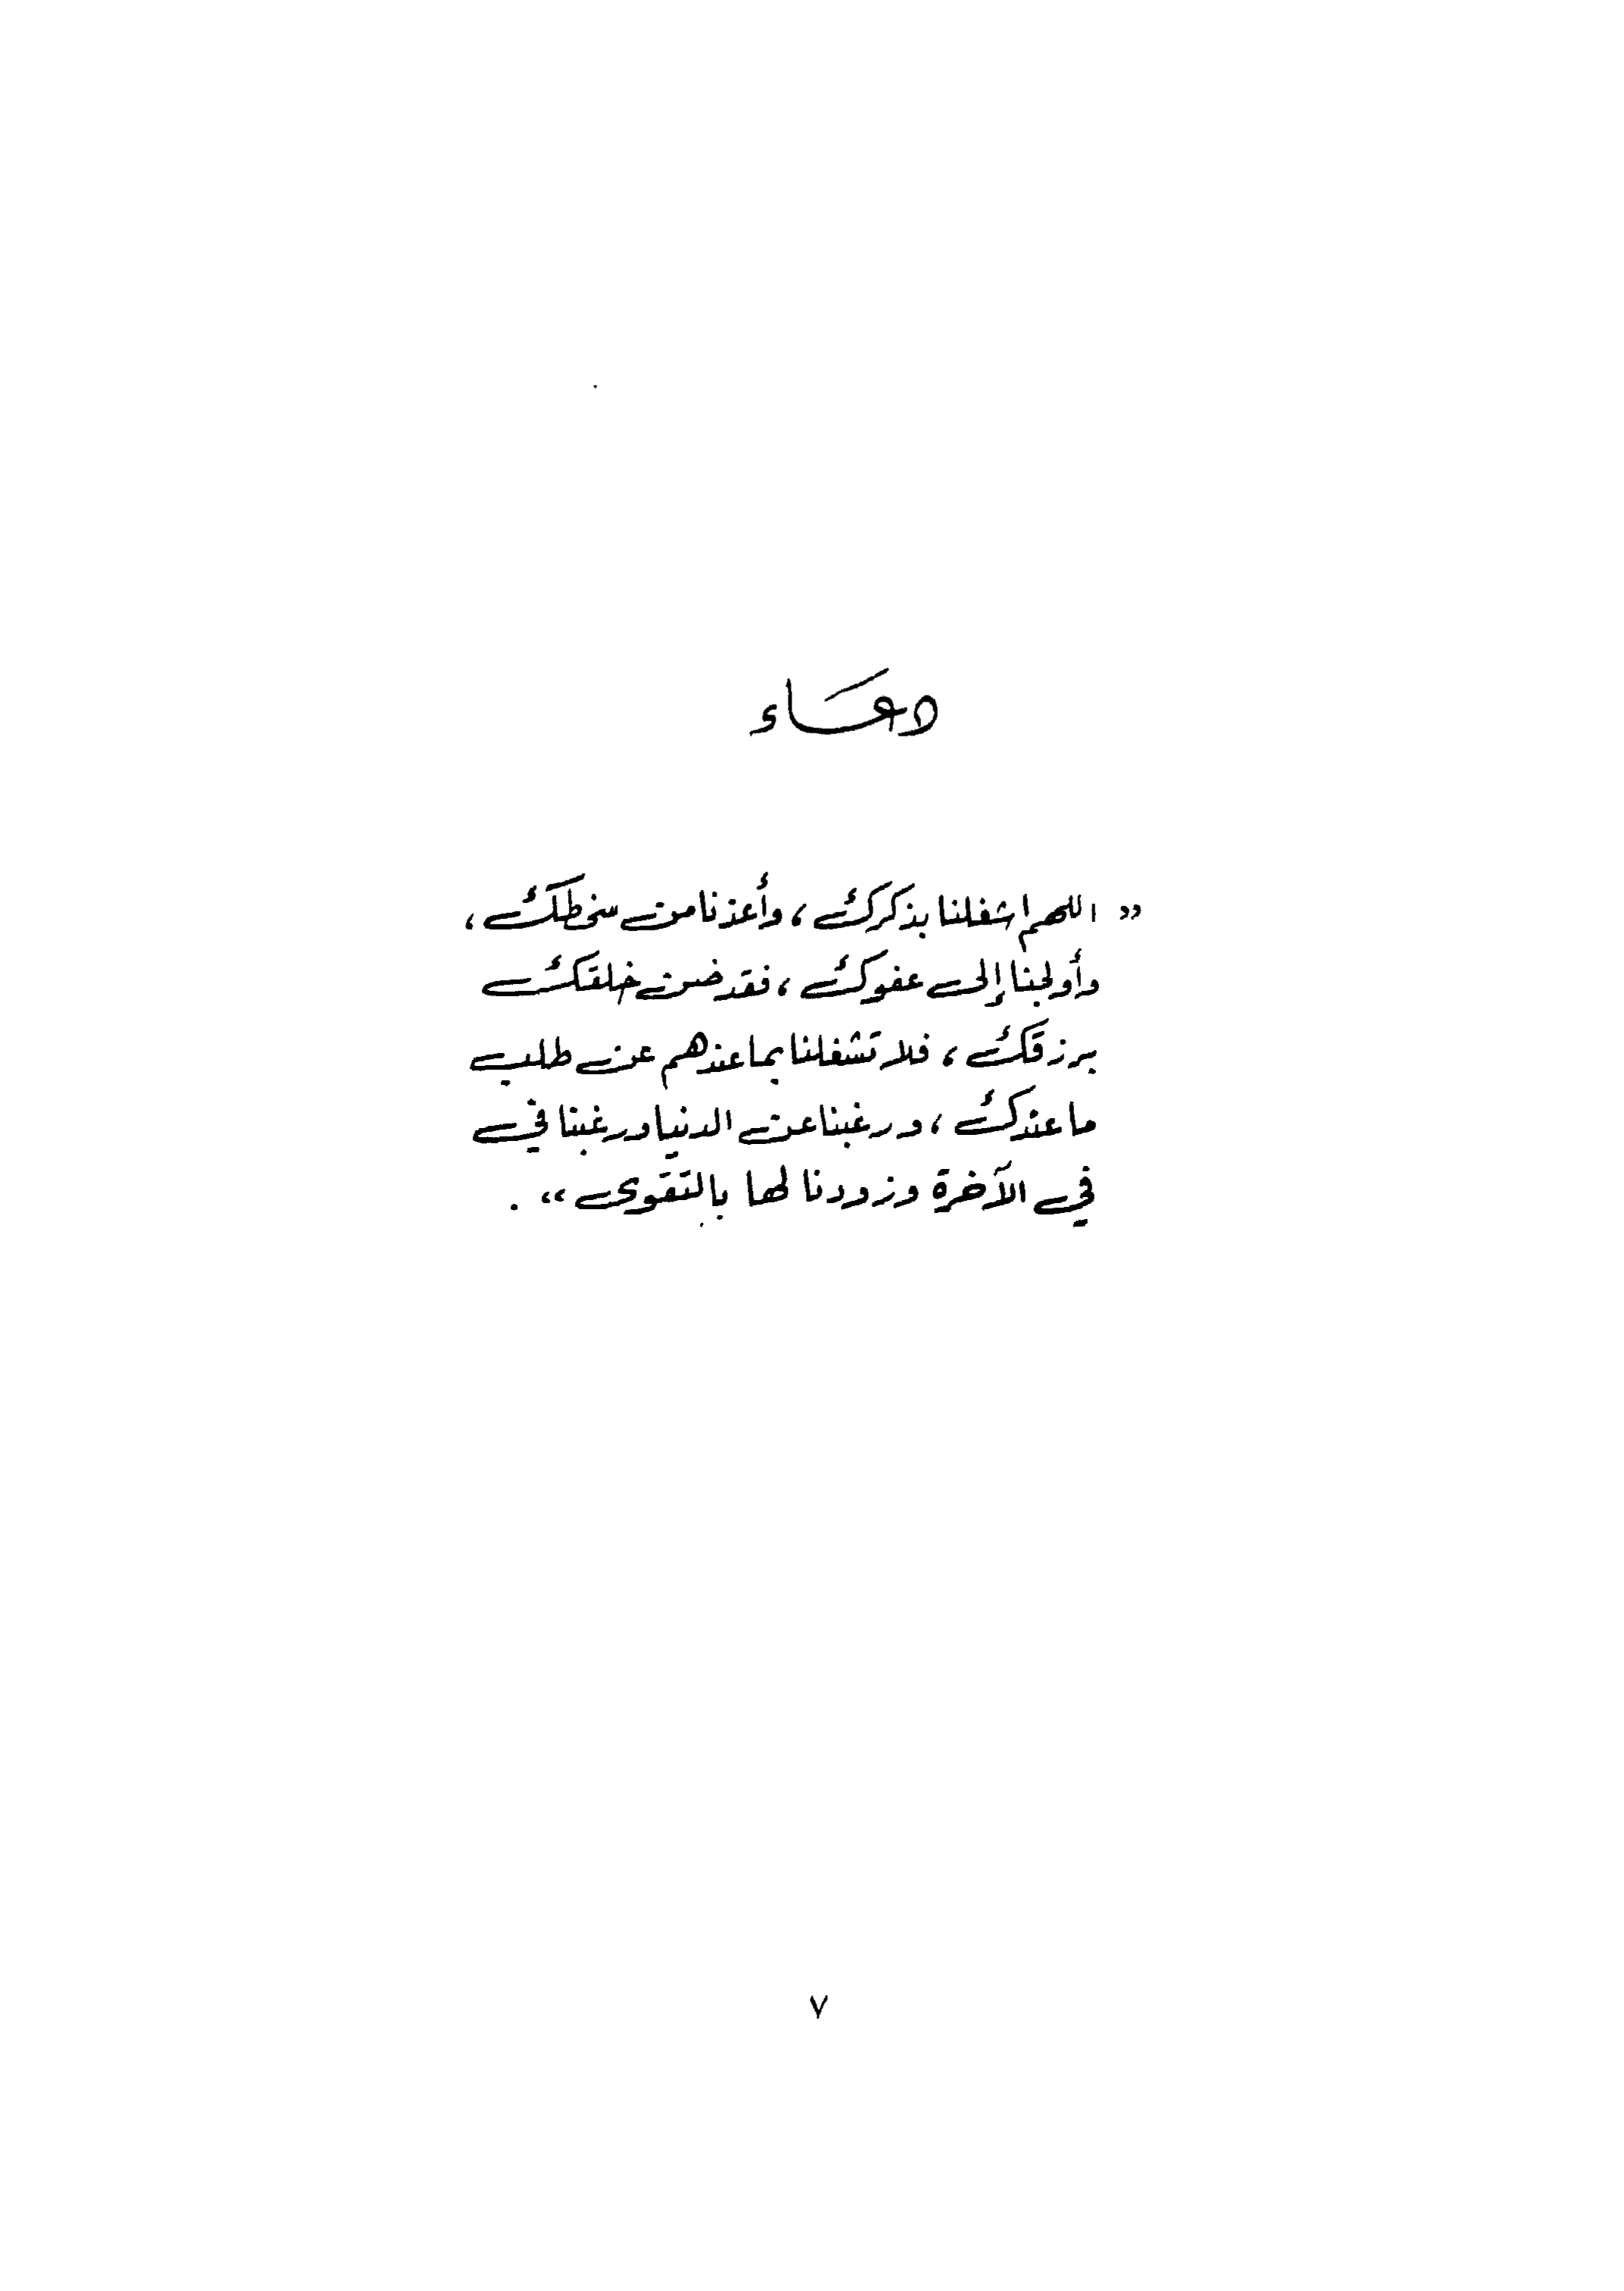 دعَاء
" اللهم اشغلنا بذكرك ، وأعذنا من سخطك ،
وأولجنا إلى عفوك ، فقد ضن خلقك
برزقك ، فلا تشغلنا بما عندهم عن طلب
ما عندك ، ورغبنا عن الدنيا ورغبنا في
في الآخرة وزودنا لها بالتقوى " .
٧